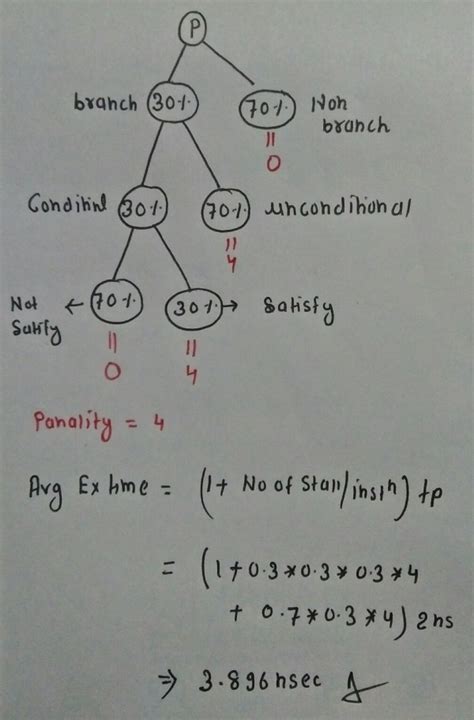 P
branch 30% 70% Non
branch
||
0
Conditinl 30% 70% unconditional
||
4
Not ← 70% 30% → Satisfy
Satify
|| ||
0 4
Panality = 4
Avg Ex time = (1 + No of Stall/instn) tp
= (1 + 0.3 * 0.3 * 0.3 * 4
+ 0.7 * 0.3 * 4) 2ns
⇒ 3.896 nsec